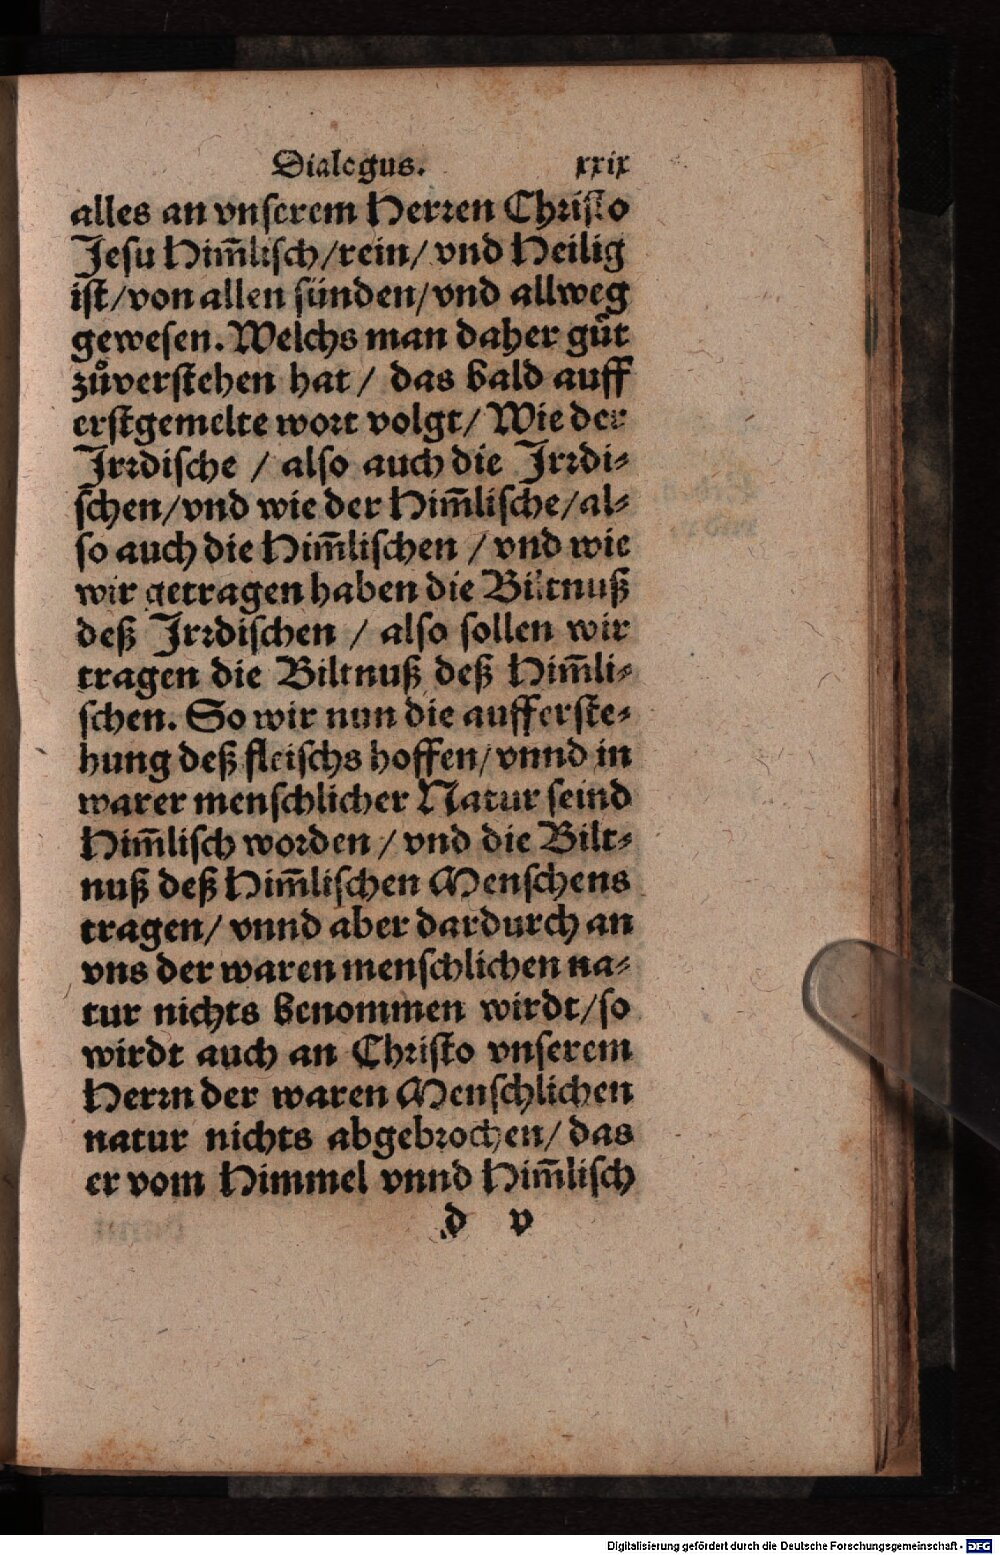 Dialogus. xxix
alles an vnserem Herren Christo
Jesu Him̃lisch/rein/vnd Heilig
ist/von allen sünden/vnd allweg
gewesen. Welchs man daher gůt
zůverstehen hat / das bald auff
erstgemelte wort volgt/ Wie der
Irrdische / also auch die Irrdi⸗
schen/vnd wie der Him̃lische/al⸗
so auch die Him̃lischen /vnd wie
wir getragen haben die Biltnuß
deß Irrdischen / also sollen wir
tragen die Biltnuß deß Him̃li⸗
schen. So wir nun die aufferste⸗
hung deß fleischs hoffen/vnnd in
warer menschlicher Natur seind
Him̃lisch worden / vnd die Bilt⸗
nuß deß Him̃lischen Menschens
tragen/ vnnd aber dardurch an
vns der waren menschlichen na⸗
tur nichts benommen wirdt/so
wirdt auch an Christo vnserem
Herrn der waren Menschlichen
natur nichts abgebrochen/ das
er vom Himmel vnnd Him̃lisch
d v
Digitalisierung gefördert durch die Deutsche Forschungsgemeinschaft - DFG